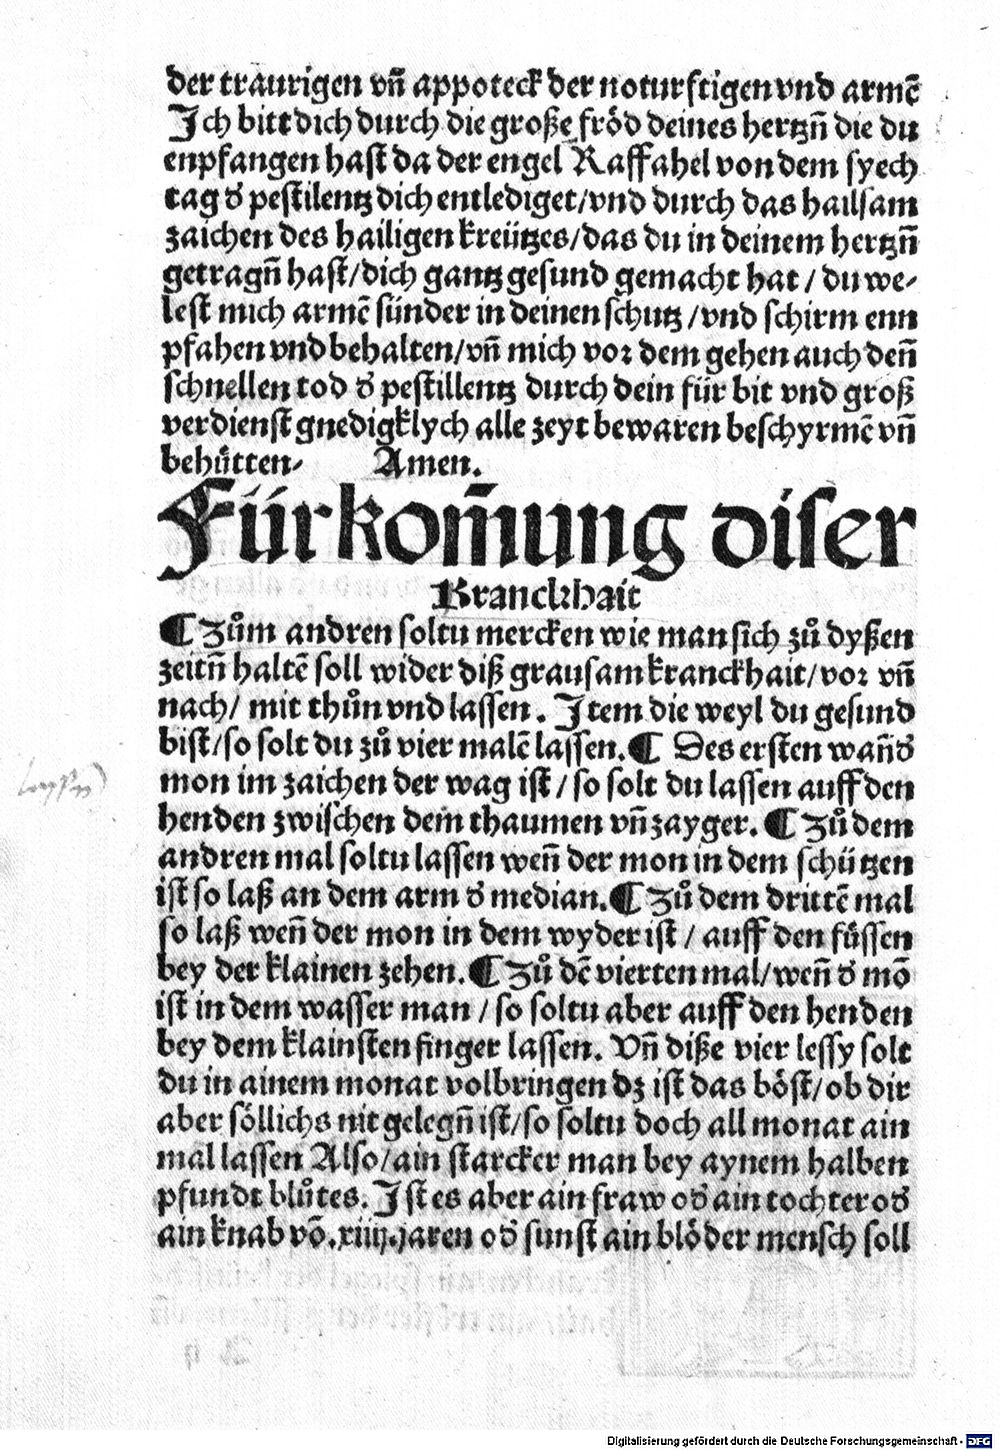 der traurigen vñ appoteck der noturftigen vnd armē
Ich bitt dich durch die große fröd deines hertzñ die du
enpfangen hast da der engel Raffahel von dem syech
tag d' pestilentz dich entlediget/vnd durch das hailsam
zaichen des hailigen kreützes/das du in deinem hertzñ
getragñ hast/dich gantz gesund gemacht hat / du we-
lest mich armē sünder in deinen schutz /vnd schirm enn
pfahen vnd behalten/vñ mich vor dem gehen auch deñ
schnellen tod d' pestillentz durch dein für bit vnd groß
verdienst gnedigklych alle zeyt bewaren beschyrmē vñ
behůtten- Amen.
Fürkom̃ung diser
Kranckhait
¶ Zům andren soltu mercken wie man sich zů dyßen
zeitñ haltē soll wider diß grausam kranckhait/vor vñ
nach/ mit thůn vnd lassen. Item die weyl du gesund
bist/so solt du zů vier malē lassen.¶ Des ersten wañ d'
mon im zaichen der wag ist /so solt du lassen auff den
henden zwischen dem thaumen vñ zayger.¶ Zů dem
andren mal soltu lassen weñ der mon in dem schützen
ist so laß an dem arm d' median.¶ Zů dem drittē mal
so laß weñ der mon in dem wyder ist / auff den füssen
bey der klainen zehen.¶ Zů dē vierten mal/weñ d' mō
ist in dem wasser man /so soltu aber auff den henden
bey dem klainsten finger lassen. Vñ diße vier lessy solt
du in ainem monat volbringen dz ist das böst/ob dir
aber söllichs nit gelegñ ist/so soltu doch all monat ain
mal lassen Also/ain starcker man bey aynem halben
pfundt blůtes. Ist es aber ain fraw od' ain tochter od'
ain knab vō.xiiij.jaren od' sunst ain blöder mensch soll
Digitalisierung gefördert durch die Deutsche Forschungsgemeinschaft - DFG